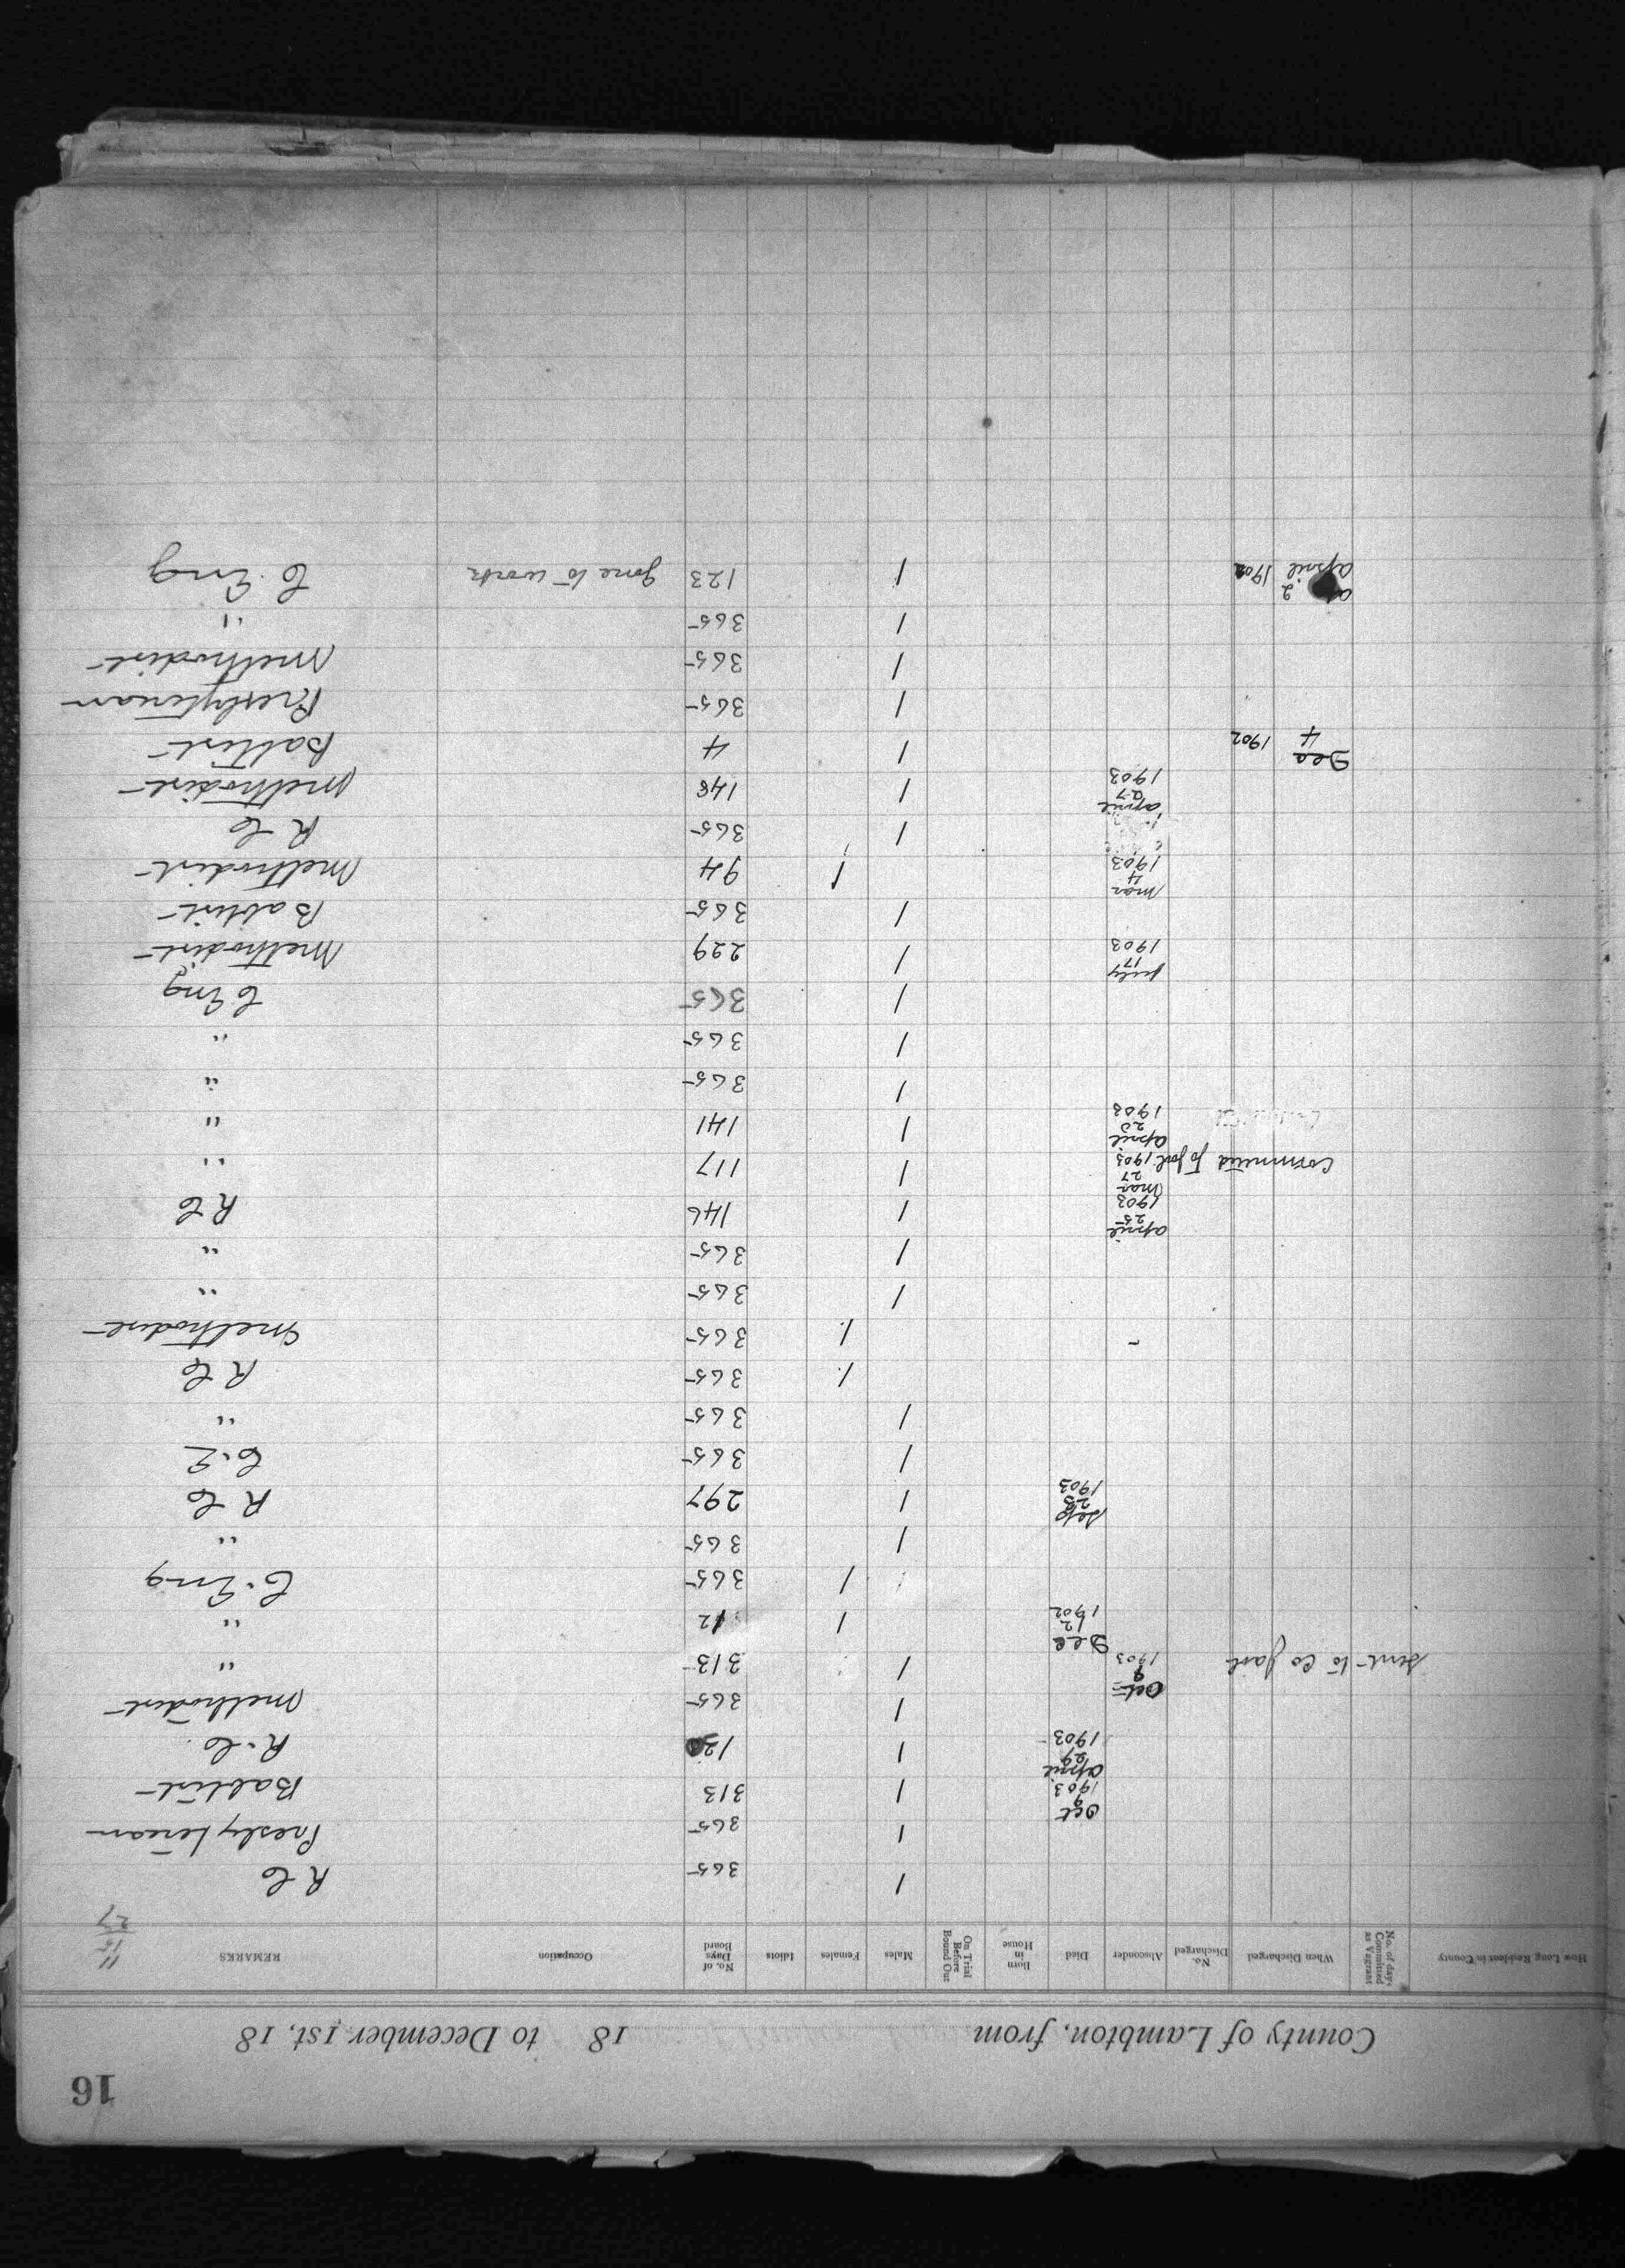 16
County of Lambton, from 18 to December 1st, 18
How Long Resident in County No. of days Committed as Vagrant When Discharged No. Discharged Absconder Died Born in House On Trial Before Bound Out Males Females Idiots No. of Days Board Occupation REMARKS
11
15
27
1 365 R C
1 365 Presbyterian
Oct 9 1903 1 313 Babtist
April 29 1903 1 R. C.
1 365 Methodist
sent to Co Jail Oct 9 1903 1 313 "
Dec 12 1902 1 12 "
1 365 C. Eng
1 365 "
Sep 23 1903 1 297 R C
1 365 C. E
1 365 "
1 365 R C
1 365 Methodist
1 365 "
1 365 "
April 25 1903 1 146 R C
Committed To Jail Mar 27 1903 1 117 "
April 20 1903 1 141 "
1 365 "
1 365 "
1 365 C Eng
July 17 1903 1 229 Methodist
1 365 Babtist
Mar 4 1903 1 94 Methodist
1 365 R C
April 27 1903 1 148 Methodist
Dec 4 1902 1 4 Babtist
1 365 Presbyterian
1 365 Methodist
1 365 "
April 2 1902 1 123 gone to work C. Eng